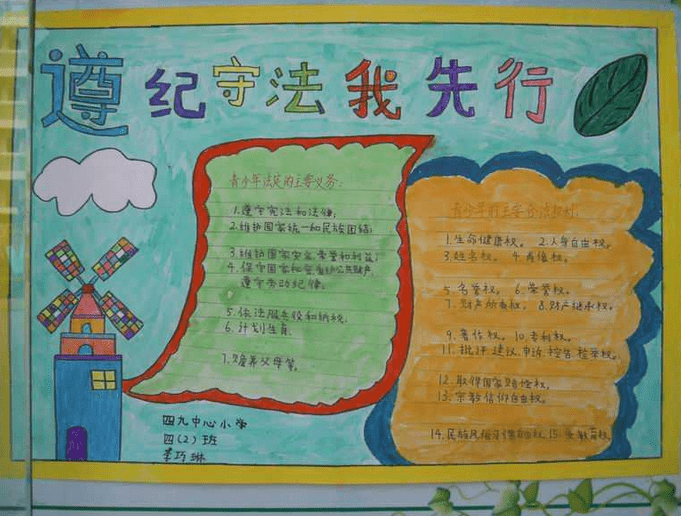 遵纪守法我先行
青少年法定的主要义务:
1.遵守宪法和法律;
2.维护国家统一和民族团结;
3.维护国家安全、荣誉和利益;
4.保守国家秘密 爱护公共财产,
遵守劳动纪律;
5.依法服兵役和纳税
6.计划生育
7.赡养父母等。
青少年的主要合法权利:
1.生命健康权。 2.人身自由权。
3.姓名权。 4.肖像权。
5.名誉权。 6.荣誉权。
7.财产所有权。 8.财产继承权。
9.著作权。 10.专利权。
11.批评、建议、申诉、控告、检举权。
12.取得国家赔偿权。
13.宗教信仰自由权。
14.民族风俗习惯 15.受教育权。
四九中心小学
四(2)班
李巧琳